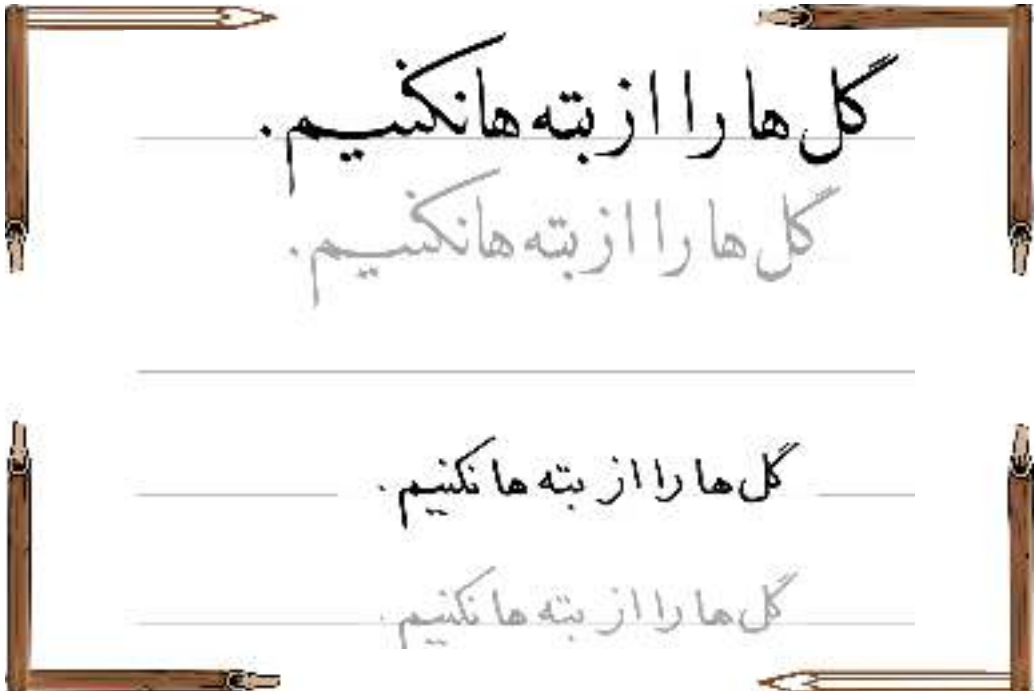 گل ها را از بته ها نکنیم.
گل ها را از بته ها نکنیم.
گل ها را از بته ها نکنیم.
گل ها را از بته ها نکنیم.